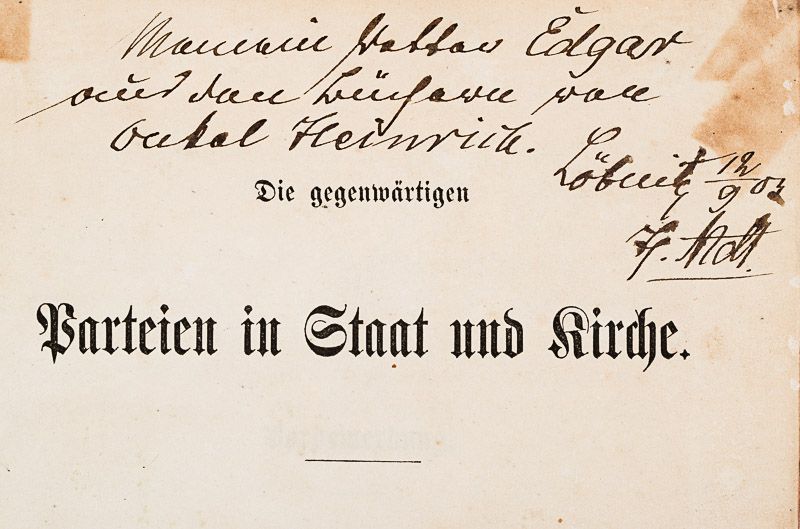 Meinem Vetter Edgar
aus den Büchern von
Onkel Heinrich.
Löbnitz 12/9 03
Die gegenwärtigen
Parteien in Staat und Kirche.